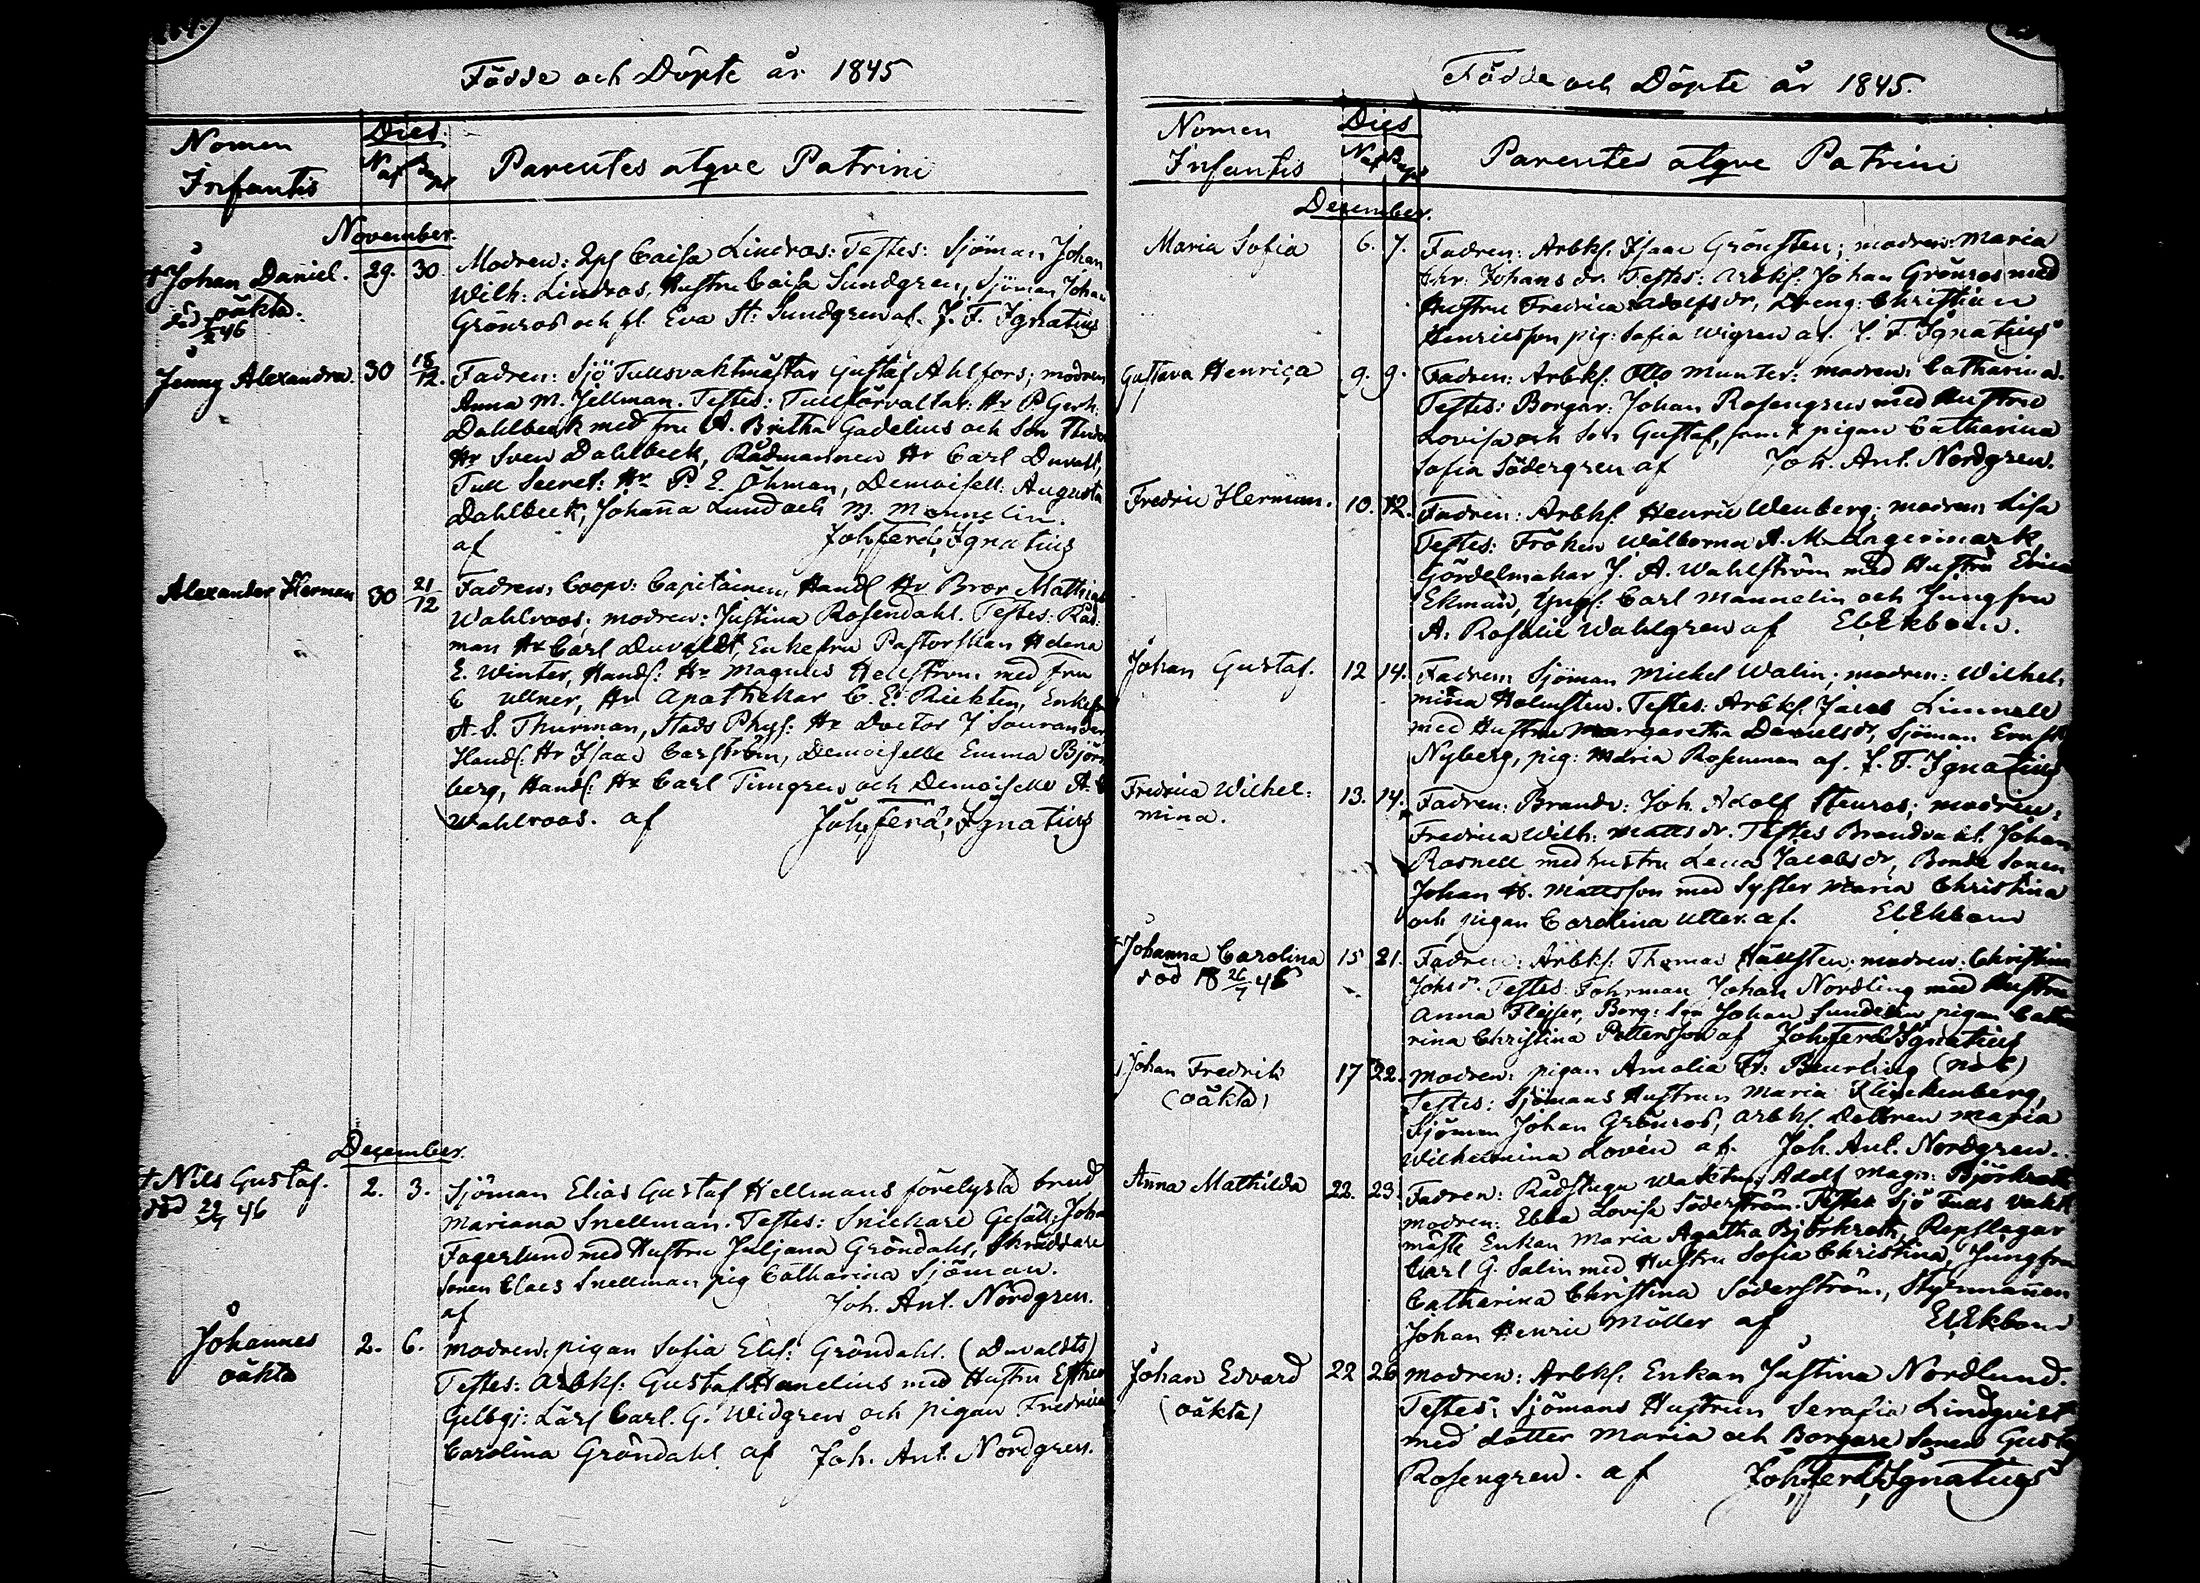 Födde och Döpte år 1845
Nomen Infantis
Dies
Nat Bapt
Parentes atqve Patrini
November.
Johan Daniel.
oäkta.
död 46
29. 30.
Modren: Caisa Lindros: Testes: Sjöman Johan
Wilh: Lindros, Hustru Caisa Sundgren, Sjöman Johan
Grönros och pl. Eva St: Sundgren af. J. F. Ignatius
Jenny Alexandra.
30 18/12.
Fadren: Sjö Tullsvaktmästar Gustaf Ahlfors; modren
Anna M. Jellman. Testes: Tullförvaltar: Hr P. Gerh.
Dahlbeck med fru A. Britha Gadelius och Son
Hr Sven Dahlbeck, Rådmannen Hr Carl Duvalt,
Tull Secret: Hr P. E. Öhman, Demoisell: Augusta
Dahlbeck, Johanna Lund och M. Mannelin.
af Joh, Ferd, Ignatius
Alexander Herman
30 21/12
Fadren: Coopv: Capitainen, Handl Hr Bror Mathias
Wahlroos; modren: Justina Rosendahl. Testes: Råd
man Hr Carl Duvaldt, Enkefru Pastorskan Helena
E. Winter, Handl: Hr Magnus Hellström med fru
C Ullner, Hr Apothekar C. E. Rickten, Enkefru
A. S. Thurman, Stads Phys: Hr Doctor J Sourander
Handl: Hr Isaac Carström, Demoiselle Emma Björn
berg, Handl: Hr Carl Timgren och Demoiselle A. C
Wahlroos. af Joh, Ferd, Ignatius
December.
† Nils Gustaf.
död 46
2. 3.
Sjöman Elias Gustaf Hellmans förelysta brud
Mariana Snellman. Testes: Snickare Gesäll: Joha
Fagerlund med Hustru Juljana Gröndahl, Skräddare
Sonen Claes Snellman, pig Catharina Sjöman.
af Joh. Ant. Nordgren.
Johannes
oäkta
2. 6.
Modren: pigan Sofia Elis: Gröndahl. (Duvaldts)
Testes: Arbks: Gustaf Hanelius med Hustru
Gelbgj: Lärl Carl. G. Widgren och pigan Fredrica
Carolina Gröndahl af Joh. Ant. Nordgren.
Födde och Döpte år 1845.
Nomen Infantis
Dies
Nat Bapt
Parentes atqve Patrini
December.
Maria Sofia
6. 7.
Fadren: Arbks: Isaac Grönsten; modren: Maria
Chr: Johans dr. Testes: Arbks: Johan Grönros med
Hustru Fredrica Adolfs dr, Dreng: Christian
Henricsson pig: Sofia Wigren af. J. F. Ignatius
Gustava Henrica
9. 9.
Fadren: Arbks: Otto Munter: modren: Catharina.
Testes: Borgar: Johan Rosengren med Hustru
Lovisa och Son Gustaf, samt pigan Catharina
Sofia Södergren af Joh. Ant. Nordgren.
Fredric Herman.
10. 12.
Fadren: Arbks: Henric Wenberg; modren Lisa
Testes: Fröken Wälborna A. M. Lagermark
Gördelmakar J. A. Wahlström med Hustru Erica
Ekman, Yngl: Carl Mannelin och Jungfru
A: Rosalie Wahlgren af El Ekbom.
Johan Gustaf.
12 14.
Fadren Sjöman Michel Walin; modren: Wilhel:
mina Holmsten. Testes: Arbks: Jacob Linnell
med Hustru Margaretha Daniels dr, Sjöman Ernst
Nyberg, pig: Maria Rosenman af. J. F. Ignatius
Fredrica Wilhel:
mina.
13. 14.
Fadren: Brandv: Joh. Adolf Stenros; modren:
Fredrica Wilh: Matts dr. Testes Brandvakt. Johan
Rosnell med hustru Lena Jacobs dr, Bonde Sonen
Johan H. Mattsson med Syster Maria Christina
och pigan Carolina Utter. af. El Ekbom
† Johanna Carolina
död 18 26/7 46
15 21.
Fadren: Arbks: Thomas Hällsten; modren: Christina
Johs dr. Testes: Fohrman Johan Nordling med Hustru
Anna Flejser, Borg: Son Johan Sundelin pigan Catha
rina Christina Pettersson af Joh, Ferd, Ignatius
Johan Fredrik
(oäkta)
17 22.
Modren: pigan Amalia Fr: Beurling
Testes: Sjömans Hustrun Maria Klinckenberg,
Sjöman Johan Grönros, Arbks. Dottren Maria
Wilhelmina Lovén af. Joh. Ant. Nordgren.
Anna Mathilda
22. 23.
Fadren: Rådstugu Waktm: Adolf Magn: Björkroth
modren: Ebba Lovisa Söderström. Testes Sjö Tulls Vakt
mäste Enkan Maria Agatha Björkroth, Repslagar
Carl G. Salin med Hustru Sofia Christina, Jungfru
Catharina Christina Söderström, Styrmannen
Johan Henric Möller af El Ekbom
Johan Edvard
(oäkta)
22 26
Modren: Arbks: Enkan Justina Nordlund.
Testes: Sjömans Hustrun Serafia Lindqvist
med Dotter Maria och Borgare Sonen Gustaf
Rosengren. af Joh, Ferd, Ignatius